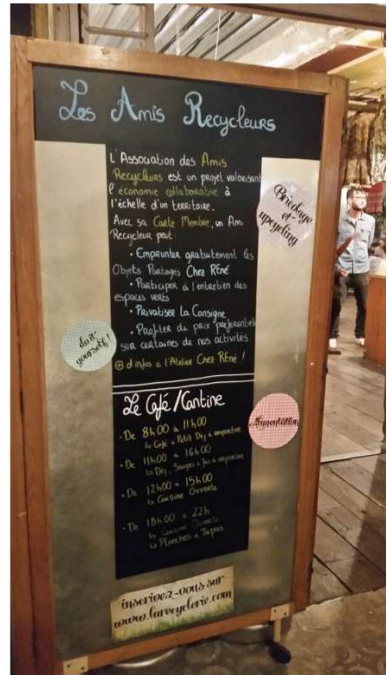 Les Amis Recycleurs
L'Association des Amis
Recycleurs est un projet valorisant
l'économie collaborative à
l'échelle d'un territoire.
Avec sa Carte Membre, un Ami
Recycleur peut :
• Emprunter gratuitement les
Objets Partagés Chez RENé
• Participer à l'entretien des
espaces verts
• Privatiser La Consigne
• Profiter de prix préférentiels
sur certaines de nos activités
⊕ d'infos à l'Atelier Chez RENé !
Bricolage
et
upcycling
do it
yourself !
Le Café/Cantine
• De 8h00 à 11h00
↳ Café & Petit Dej à emporter
• De 11h00 à 16h00
↳ Dej, à emporter
• De 12h00 à 15h00
↳ Cuisine Ouverte
• De 18h00 à 22h
↳ Cuisine Ouverte
↳ Planches & Tapas
Alimentation
inscrivez-vous sur
www.larecyclerie.com